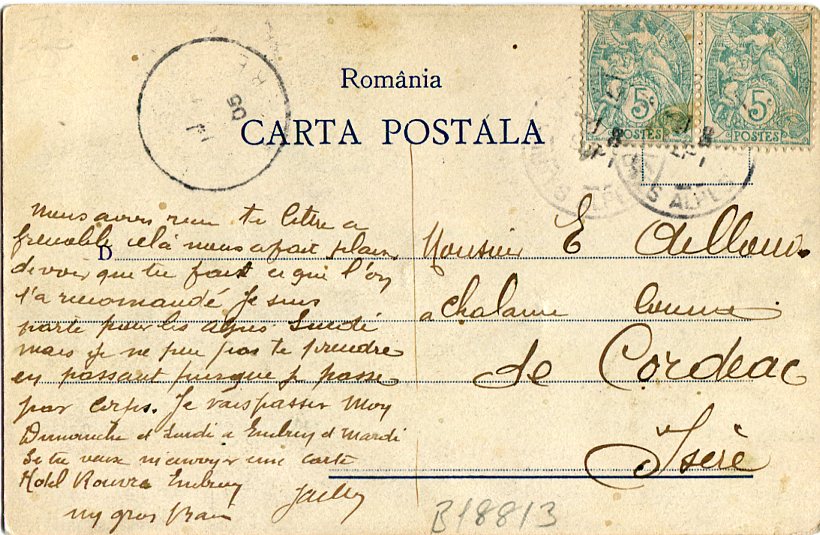 România
CARTA POSTALA
5c 5c
POSTES POSTES
05
nous avons recu ta lettre a
grenoble celà nous a fait plaisir
D
de voir que tu fais ce que l'on
t'a recomandé Je suis
parti pour les alpes
mais je ne peu pas te prendre
en passant puisque je passe
par Je vais passer
Dimanche et Lundi a Embrun et Mardi
Si tu veux m'envoyer une carte
Hotel Embrun
un gros
Monsieur E
a chalanne
de Cordeac
Isère
B18813